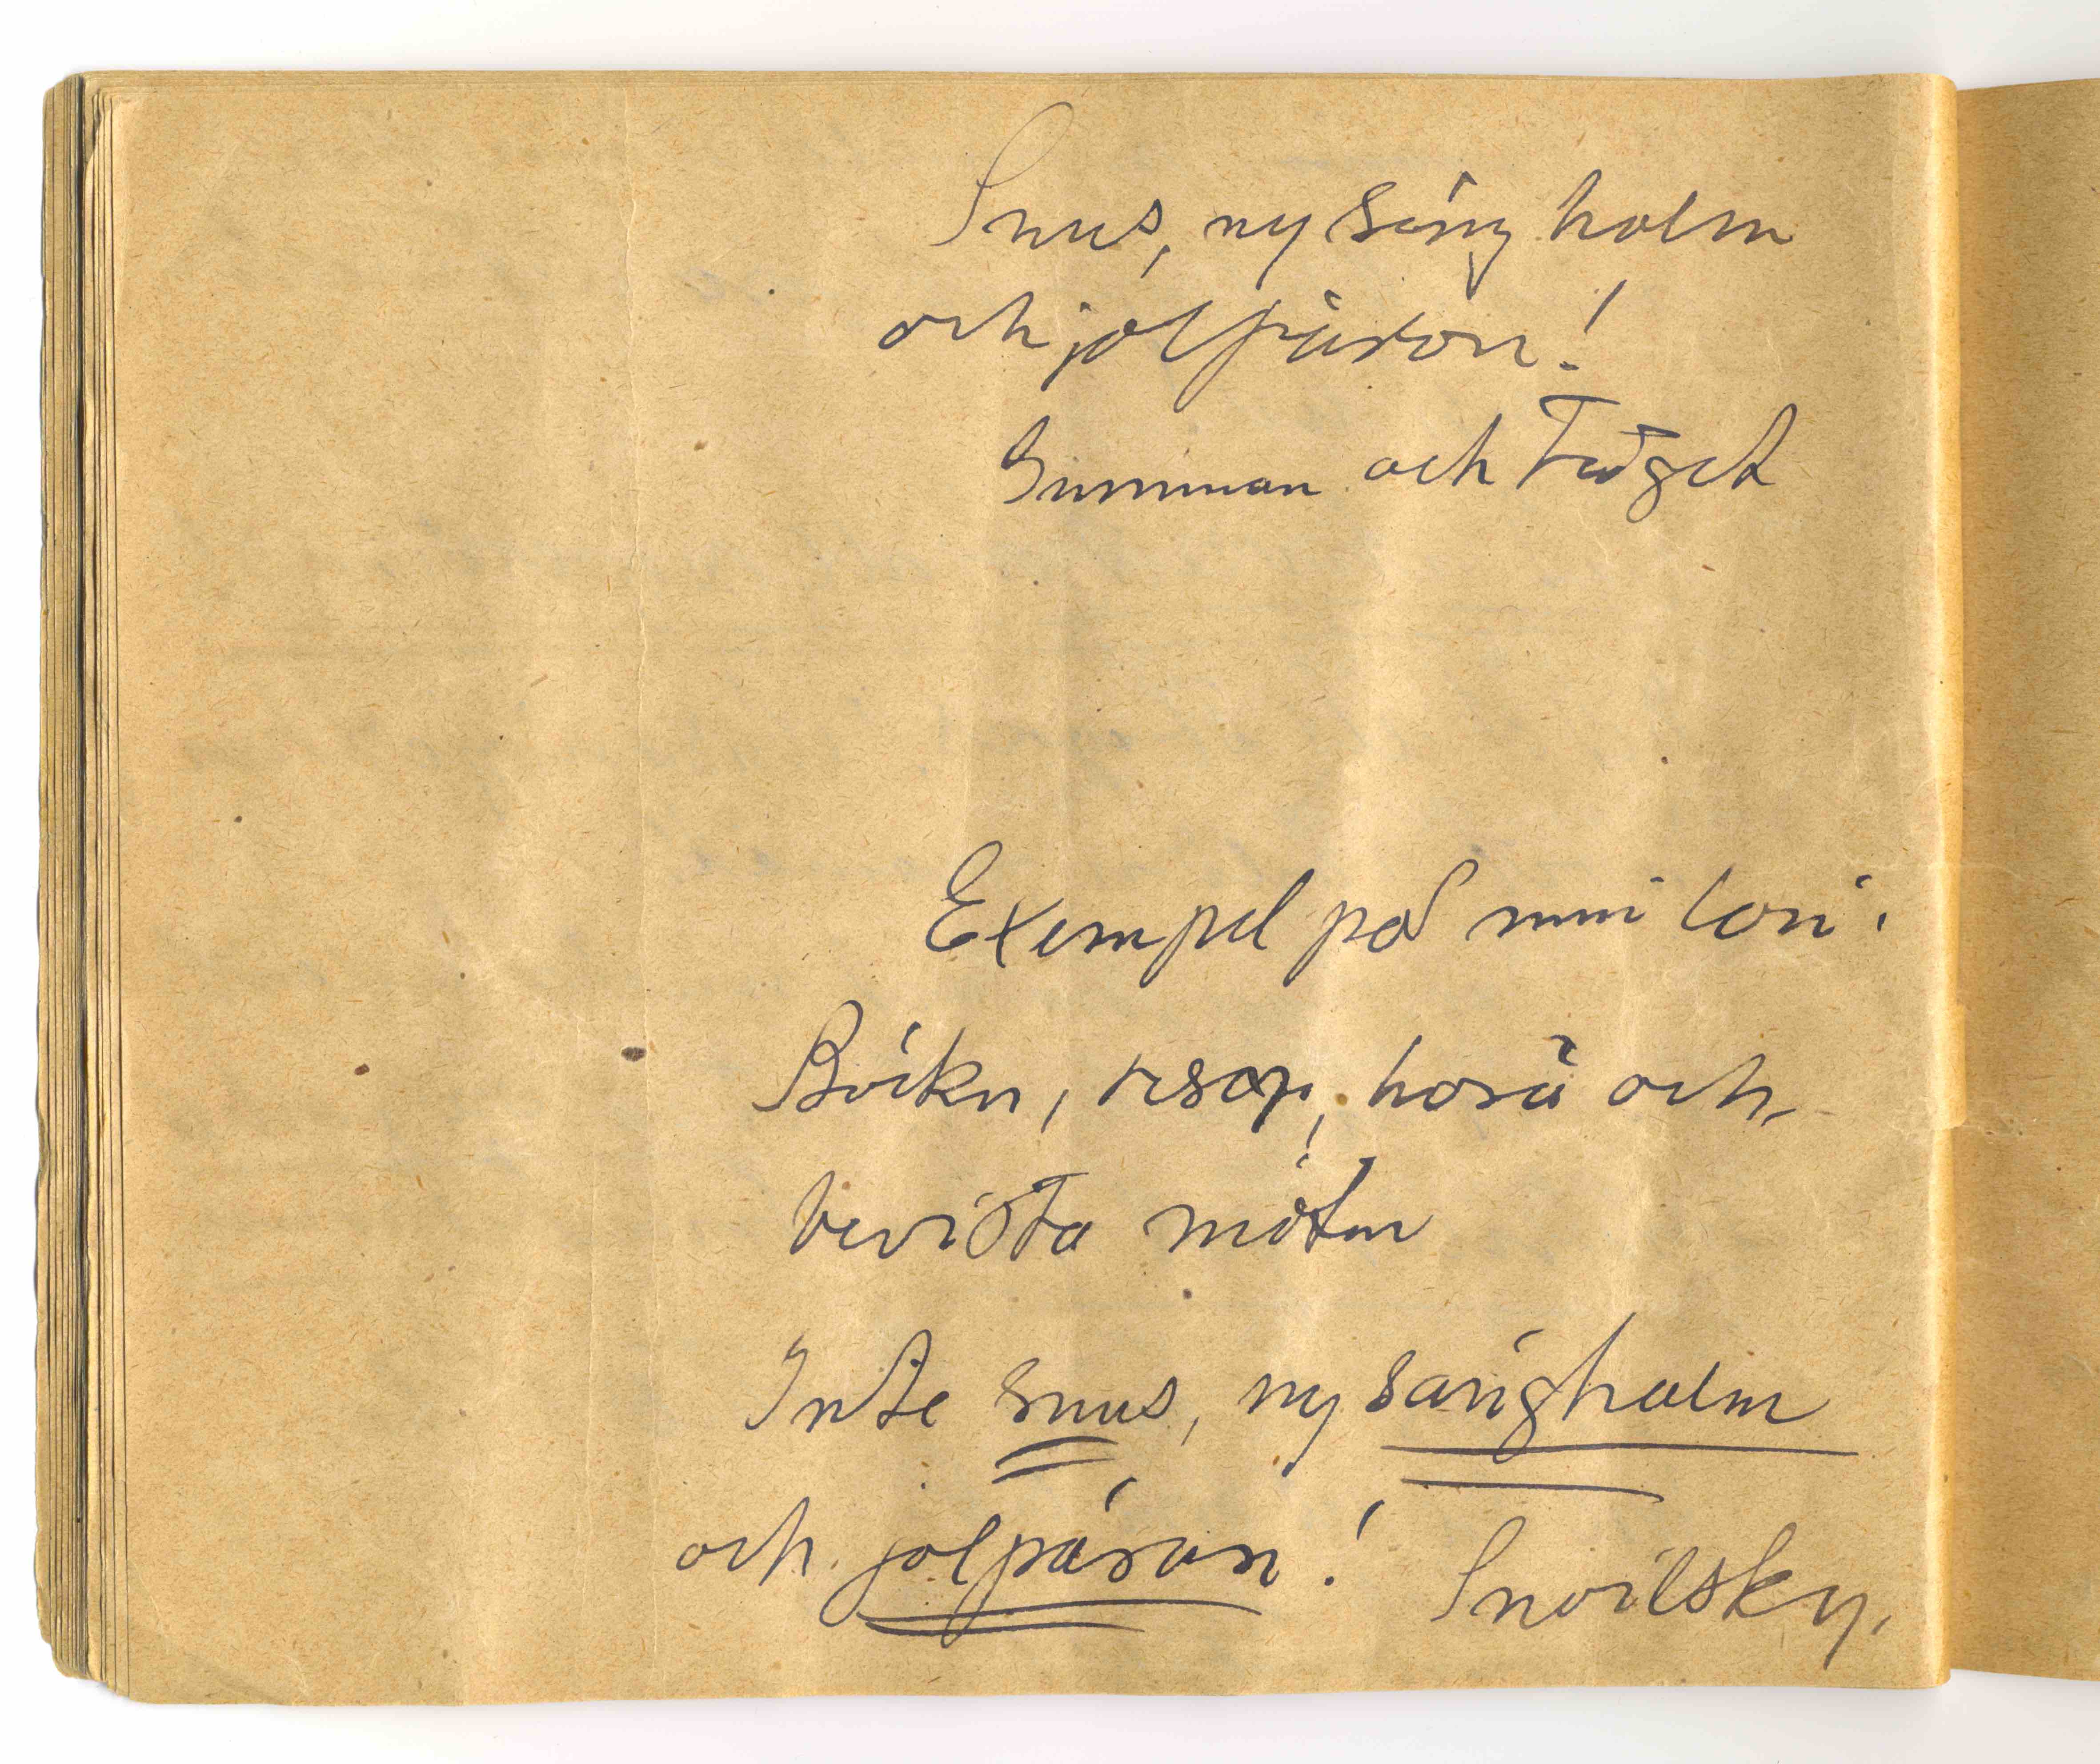 Snus, ny säng halm
och jolpäron!
Gumman och Trägct
Exempel på min
Böcker, resor, och
bevista möten
Inte snus, ny sänghalm
och jolpäron! Snoilsky.